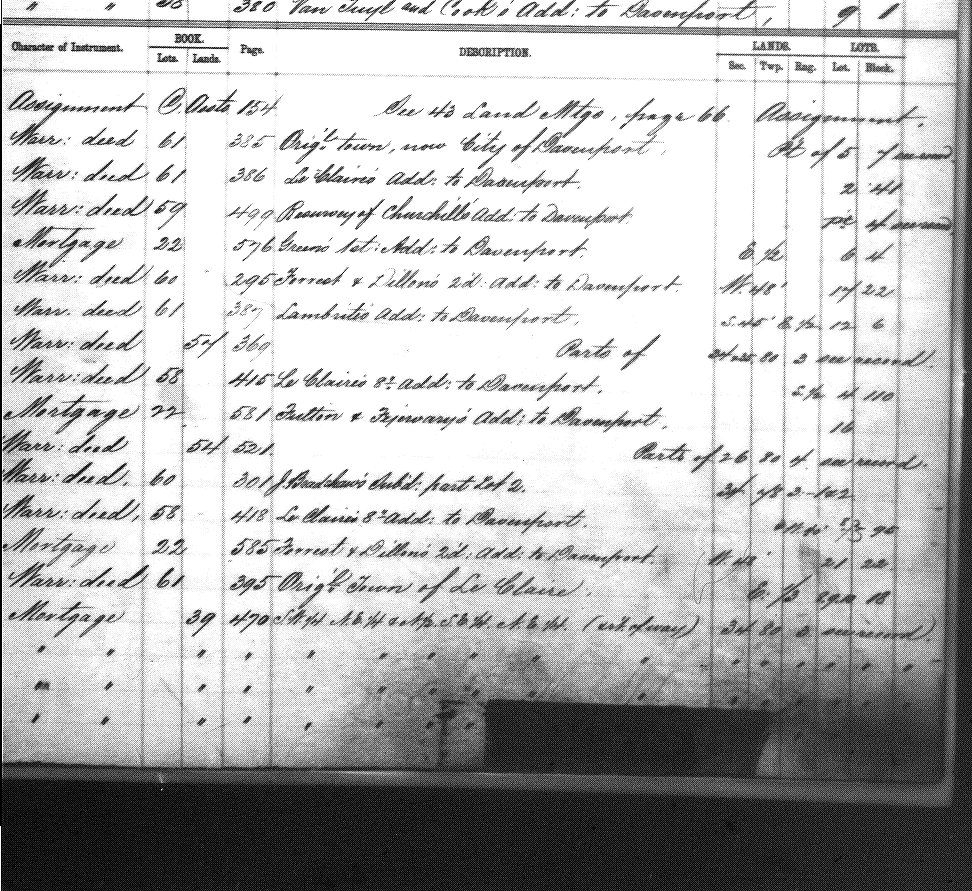 " " 58 380 Van Tuyl and Cook's Add: to Davenport, 9 1
Character of Instrument. BOOK. Page. DESCRIPTION. LANDS. LOTS.
Lots. Lands. Sec. Twp. Rng. Lot. Block.
Assignment 154 See 43 Land Mtgs, page 66. Assignment.
Warr: deed 61 385 Orig'l town, now City of Davenport, Pt of 5 7 see record.
Warr: deed 61 386 Le Claire's Add: to Davenport. 2 41
Warr: deed 59 499 Resurvey of Churchill's Add: to Davenport. 4 see record.
Mortgage 22 576 Green's 1st: Add: to Davenport. E ½ 6 4
Warr: deed 60 295 Forrest & Dillon's 2'd: Add: to Davenport. W. 48' 17 22
Warr. deed 61 387 Lambrite's Add: to Davenport. S. 45' E ½ 12 6
Warr: deed 369 Parts of 80 3 see record.
Warr: deed 58 415 Le Claire's 8th Add: to Davenport. S ½ 4 110
Mortgage 22 581 Fulton & Fejervary's Add: to Davenport. 16
Warr: deed 54 521. Parts of 26 80 4. see record.
Warr: deed. 60 301 J. Bradshaw's Subd: part Lot 2. 34 78 3 1 & 2
Warr: deed, 58 418 Le Claire's 8th Add: to Davenport. 95
Mortgage 22 585 Forrest & Dillon's 2'd: Add: to Davenport. W. 48' 21 22
Warr: deed 61 395 Orig'l Town of Le Claire. E. ⅓ 18
Mortgage 39 470 S.W.¼ N.E.¼ & N.½ S.E.¼ N.E.¼. (of way) 34 80 see record.
" " " " " " " " " " " " " " "
" " " " " " " " "
" " " " " " "